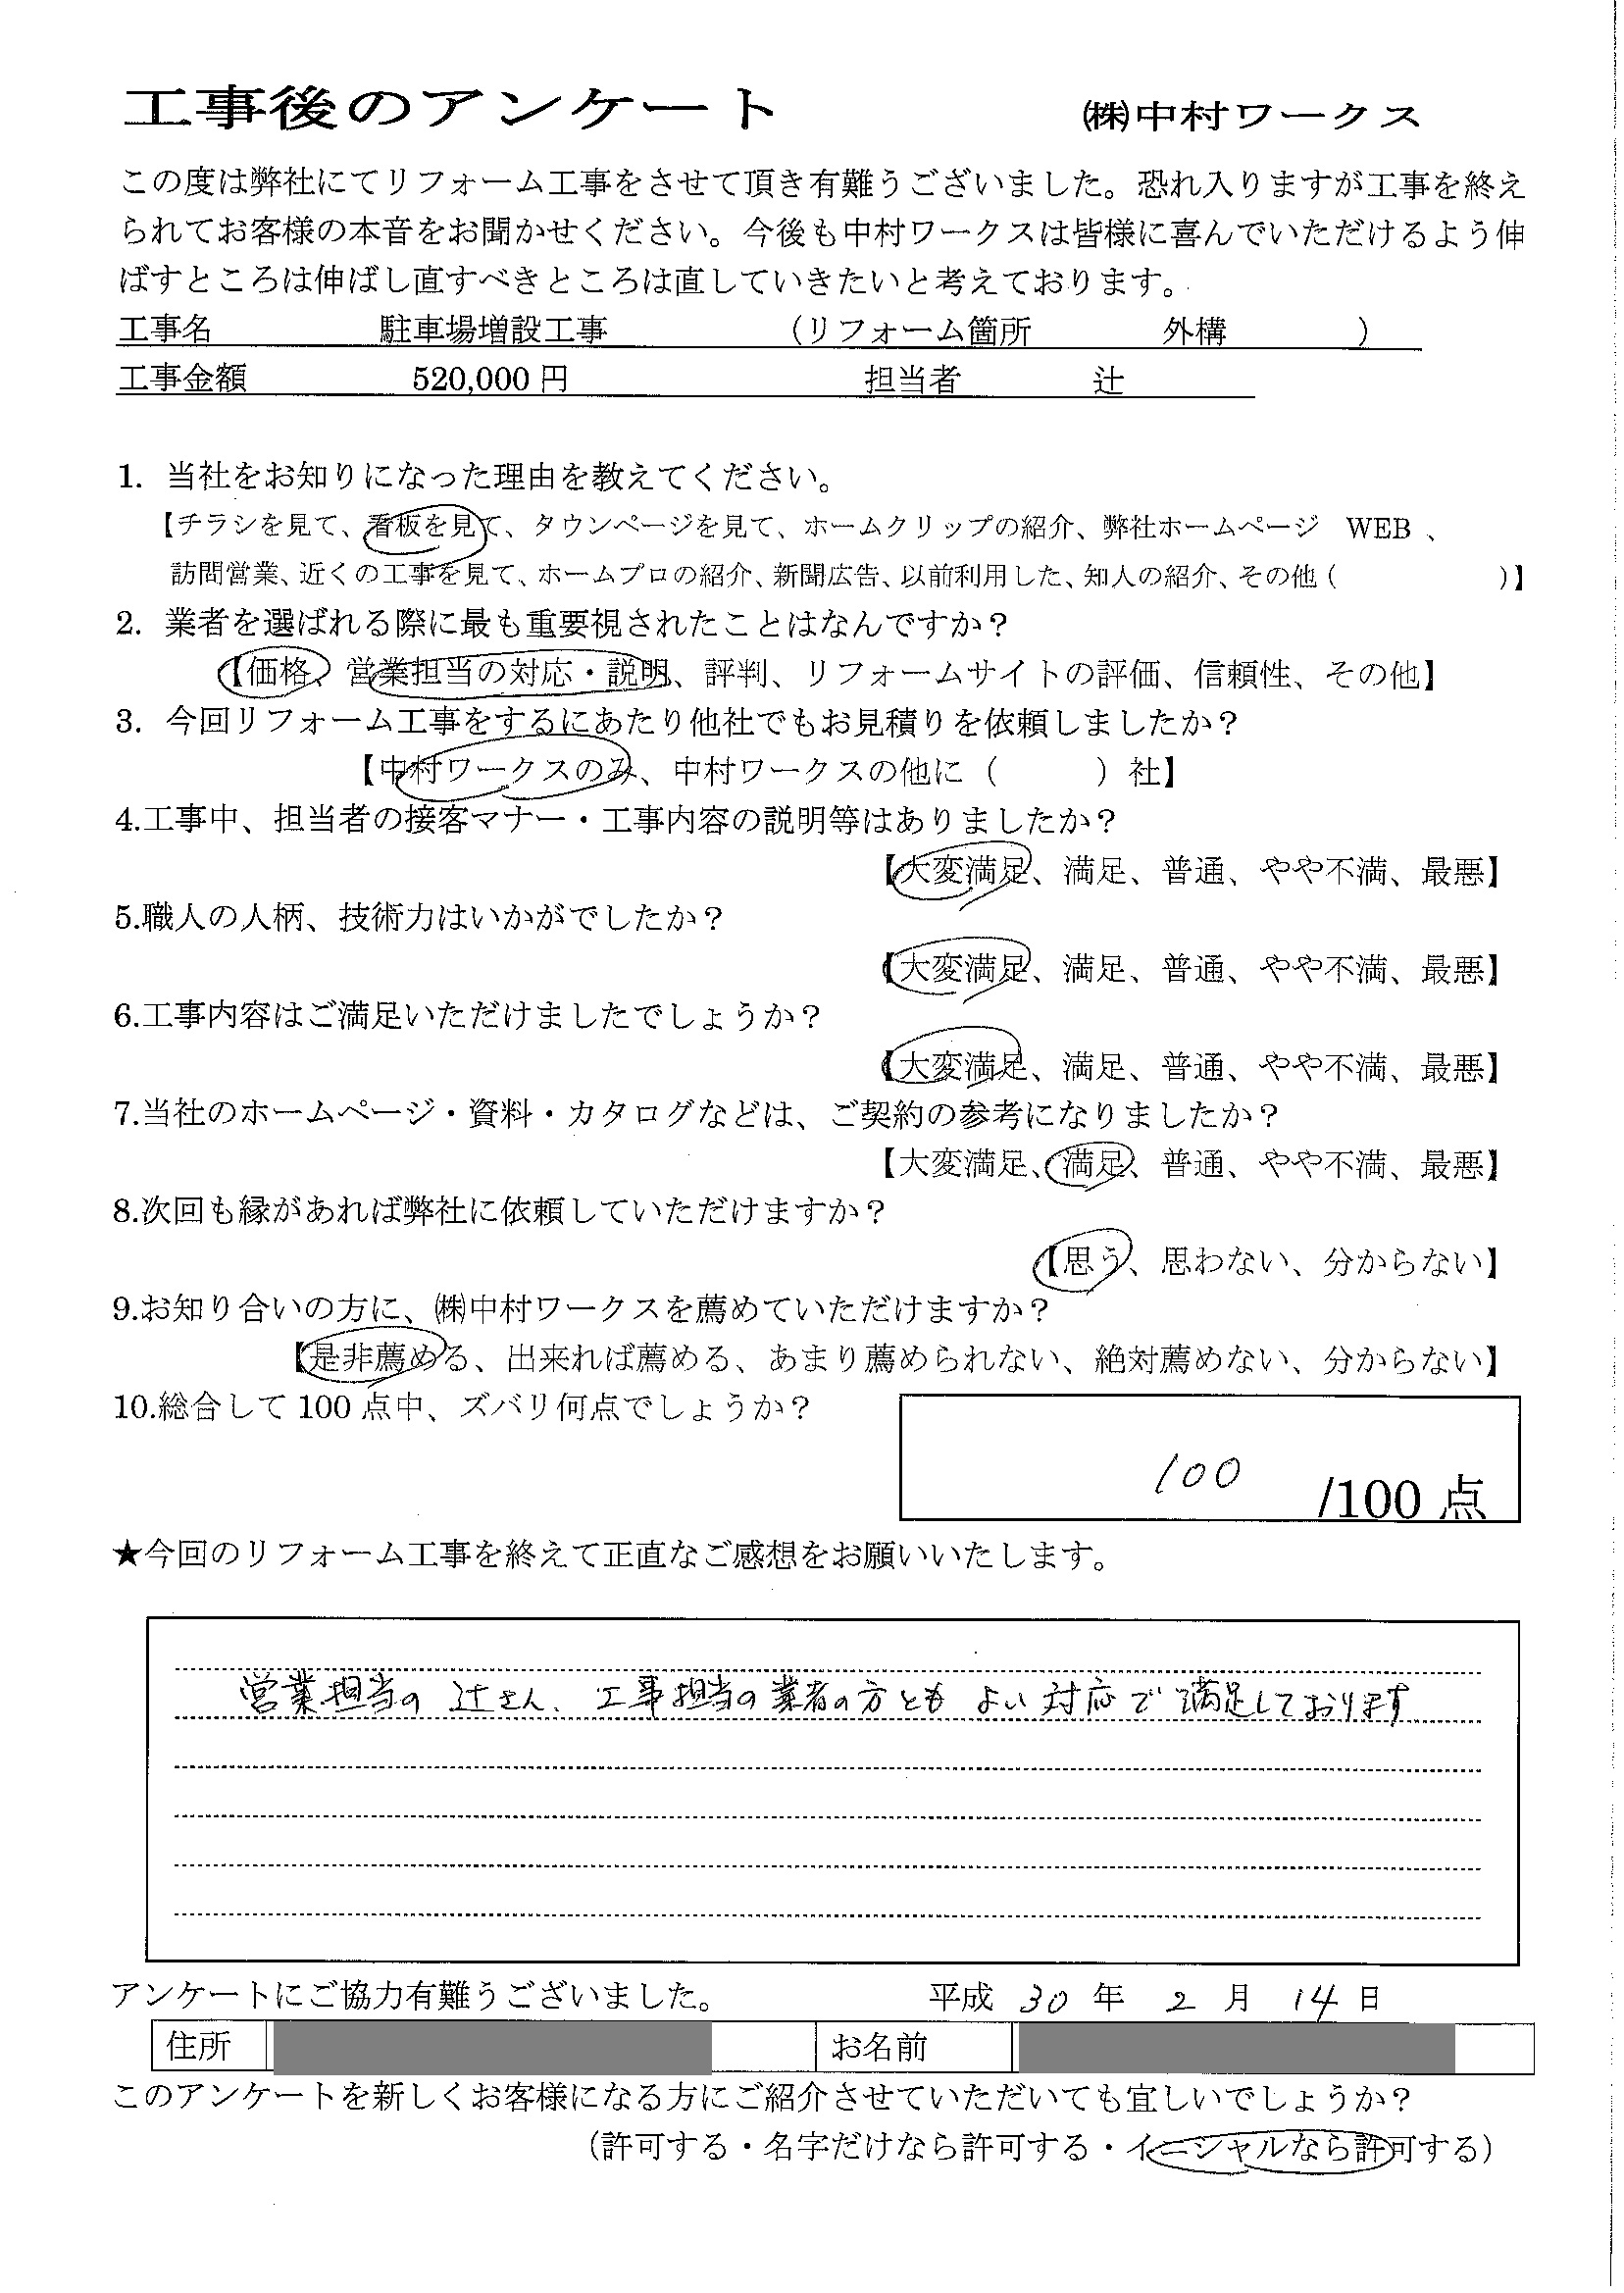 工事後のアンケート ㈱中村ワークス
この度は弊社にてリフォーム工事をさせて頂き有難うございました。恐れ入りますが工事を終え
られてお客様の本音をお聞かせください。今後も中村ワークスは皆様に喜んでいただけるよう伸
ばすところは伸ばし直すべきところは直していきたいと考えております。
工事名 駐車場増設工事 （リフォーム箇所 外構 ）
工事金額 520,000 円 担当者 辻
1. 当社をお知りになった理由を教えてください。
【チラシを見て、看板を見て、タウンページを見て、ホームクリップの紹介、弊社ホームページ WEB 、
訪問営業、近くの工事を見て、ホームプロの紹介、新聞広告、以前利用した、知人の紹介、その他（ ）】
2. 業者を選ばれる際に最も重要視されたことはなんですか？
【価格、営業担当の対応・説明、評判、リフォームサイトの評価、信頼性、その他】
3. 今回リフォーム工事をするにあたり他社でもお見積りを依頼しましたか？
【中村ワークスのみ、中村ワークスの他に（ ）社】
4.工事中、担当者の接客マナー・工事内容の説明等はありましたか？
【大変満足、満足、普通、やや不満、最悪】
5.職人の人柄、技術力はいかがでしたか？
【大変満足、満足、普通、やや不満、最悪】
6.工事内容はご満足いただけましたでしょうか？
【大変満足、満足、普通、やや不満、最悪】
7.当社のホームページ・資料・カタログなどは、ご契約の参考になりましたか？
【大変満足、満足、普通、やや不満、最悪】
8.次回も縁があれば弊社に依頼していただけますか？
【思う、思わない、分からない】
9.お知り合いの方に、㈱中村ワークスを薦めていただけますか？
【是非薦める、出来れば薦める、あまり薦められない、絶対薦めない、分からない】
10.総合して 100 点中、ズバリ何点でしょうか？
100 /100 点
★今回のリフォーム工事を終えて正直なご感想をお願いいたします。
営業担当の 辻さん、工事担当の業者の方とも よい対応で満足しております
アンケートにご協力有難うございました。 平成 30 年 2 月 14 日
住所 お名前
このアンケートを新しくお客様になる方にご紹介させていただいても宜しいでしょうか？
（許可する・名字だけなら許可する・イニシャルなら許可する）